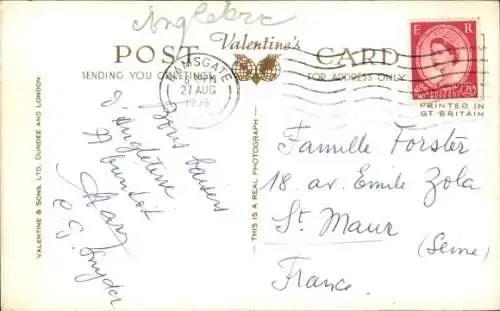 Angleterre
POST Valentine's CARD
SENDING YOU GREETINGS
FOR ADDRESS ONLY
RAMSGATE
27 AUG
1956
E R
2½D
PRINTED IN
GT BRITAIN
VALENTINE & SONS. LTD. DUNDEE AND LONDON
THIS IS A REAL PHOTOGRAPH
Bons baisers
d'Angleterre
A bientôt
Famille Forster
18, av. Emile Zola
St. Maur
(Seine)
France.